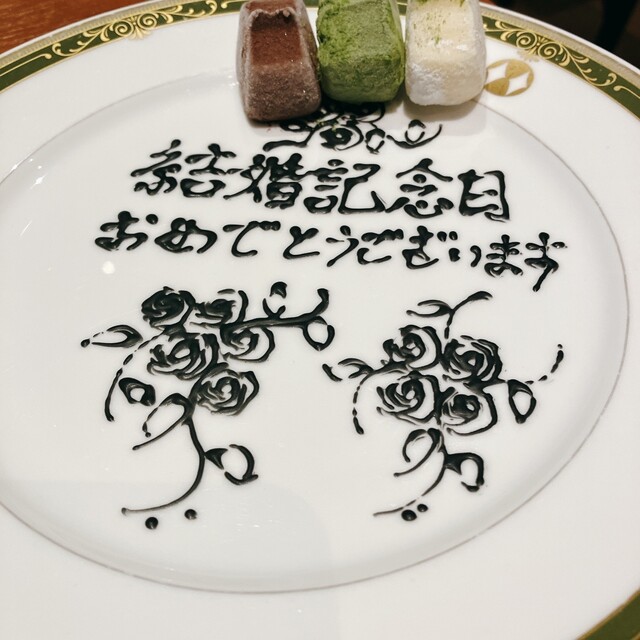 結婚記念日
おめでとうございます